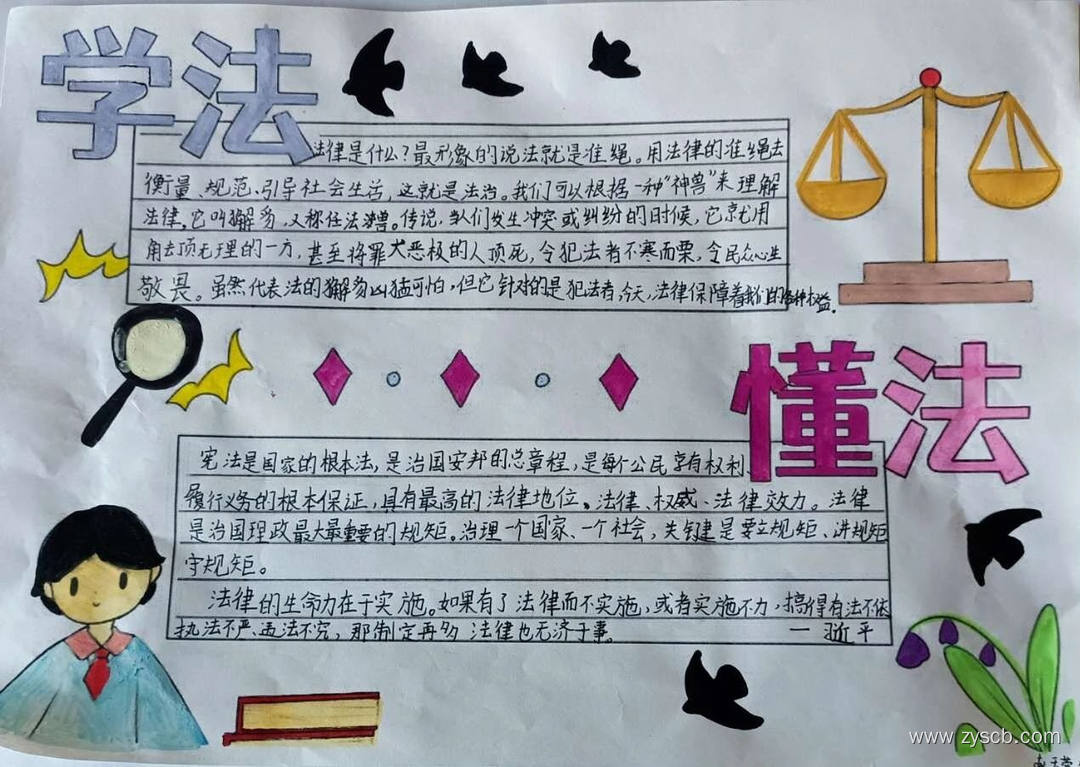 学法
法律是什么?最形象的说法就是准绳。用法律的准绳去
衡量、规范、引导社会生活,这就是法治。我们可以根据一种“神兽”来理解
法律,它叫獬豸,又称任法兽。传说,当人们发生冲突或纠纷的时候,它就用
角去顶无理的一方,甚至将罪大恶极的人顶死,令犯法者不寒而栗,令民众心生
敬畏。虽然代表法的獬豸凶猛可怕,但它针对的是犯法者,今天,法律保障着我们的各种权益。
懂法
宪法是国家的根本法,是治国安邦的总章程,是每个公民享有权利、
履行义务的根本保证,具有最高的法律地位。法律、权威、法律效力。法律
是治国理政最大最重要的规矩。治理一个国家、一个社会,关键是要立规矩、讲规矩
守规矩。
法律的生命力在于实施。如果有了法律而不实施,或者实施不力,搞得有法不依
执法不严、违法不究,那制定再多法律也无济于事。 一 习近平
www.zyscb.com